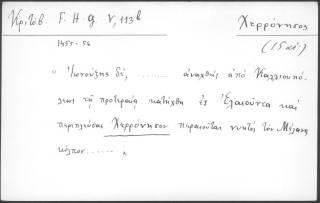 Κριτόβ. F. H G V, 113b
Χερρόνησος
1455-56
(15 αἰ.)
ὁ Ἰωνούζης δέ, ......... ἀναχθεὶς ἀπὸ Καλλιουπό-
λεως τῇ προτεραίᾳ κατήχθη ἐς Ἐλαιοῦντα καὶ
περιπλεύσας Χερρόνησον περαιοῦται νυκτὸς τὸν Μέλανα
κόλπον...... "